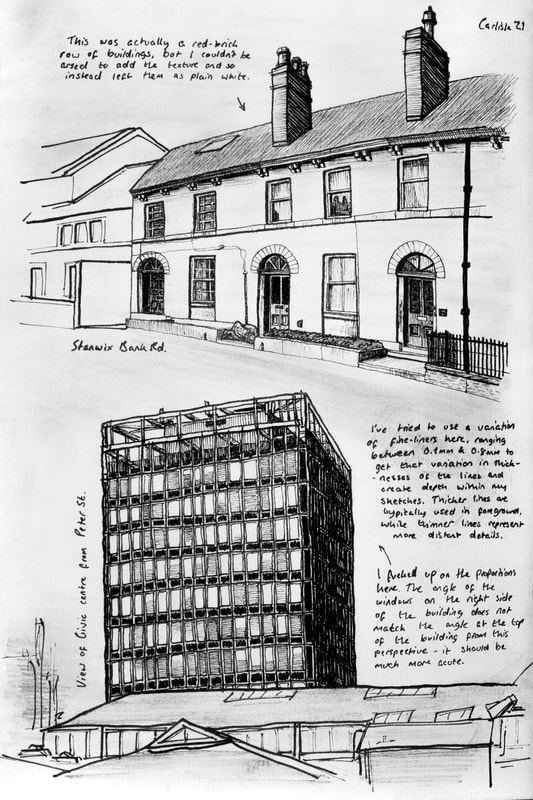 Carlisle '21
This was actually a red-brick
row of buildings, but I couldn't be
arsed to add the texture and so
instead left them as plain white.
Stanwix Bank Rd.
I've tried to use a variation
of fine-liners here, ranging
between 0.1mm & 0.8mm to
get that variation in thick-
-nesses of the lines and
create depth within my
sketches. Thicker lines are
typically used in foreground,
while thinner lines represent
more distant details.
View of Civic centre from Peter St.
I fucked up on the proportions
here. The angle of the
windows on the right side
of the building does not
match the angle at the top
of the building from this
perspective - it should be
much more acute.